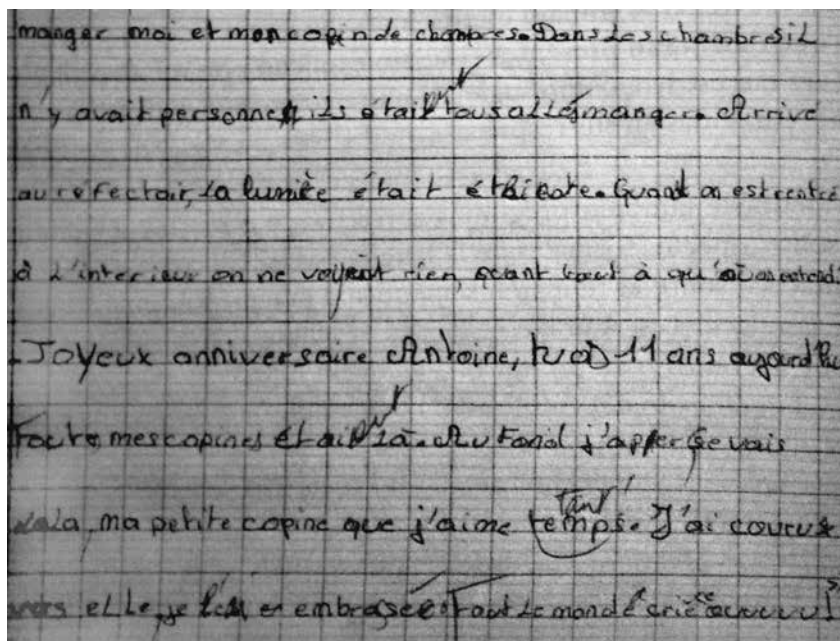 manger moi et mon copin de chambres. Dans les chambres il
n'y avait personne, ils était ent tous allés manger. Arrivé
au réfectoir, la lumière était
Quand on est rentré
à l'interieur on ne voyait rien, quant tout à qu'on entend
- Joyeux anniversaire Antoine, tu as 11 ans aujourd'hu
Toute mes copines était ent là. Au fond j'apperçevais
ma petite copine que j'aime temps. tant ! J'ai couru
vers elle, je l'ai embrasée Tout le monde crie